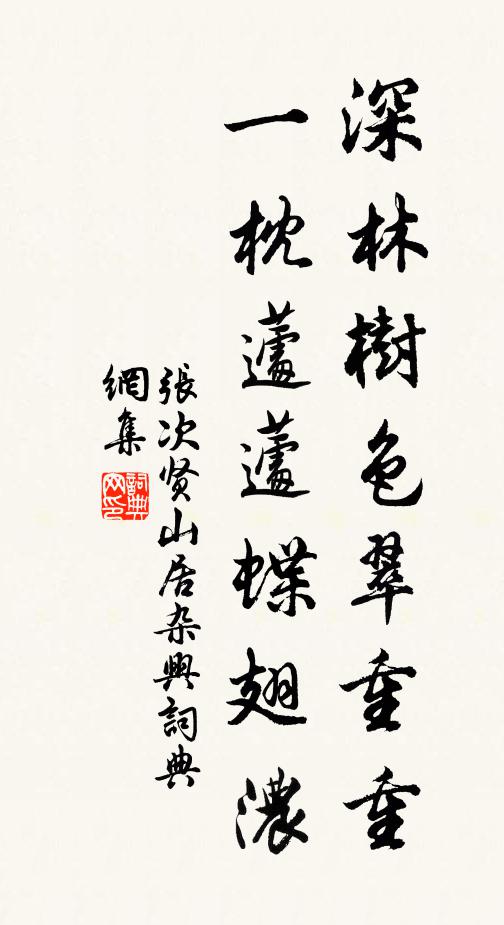 深林樹色翠重重
一枕蘧蘧蝶翅濃
張次贤山居杂興詞典
網集
詞典
网印